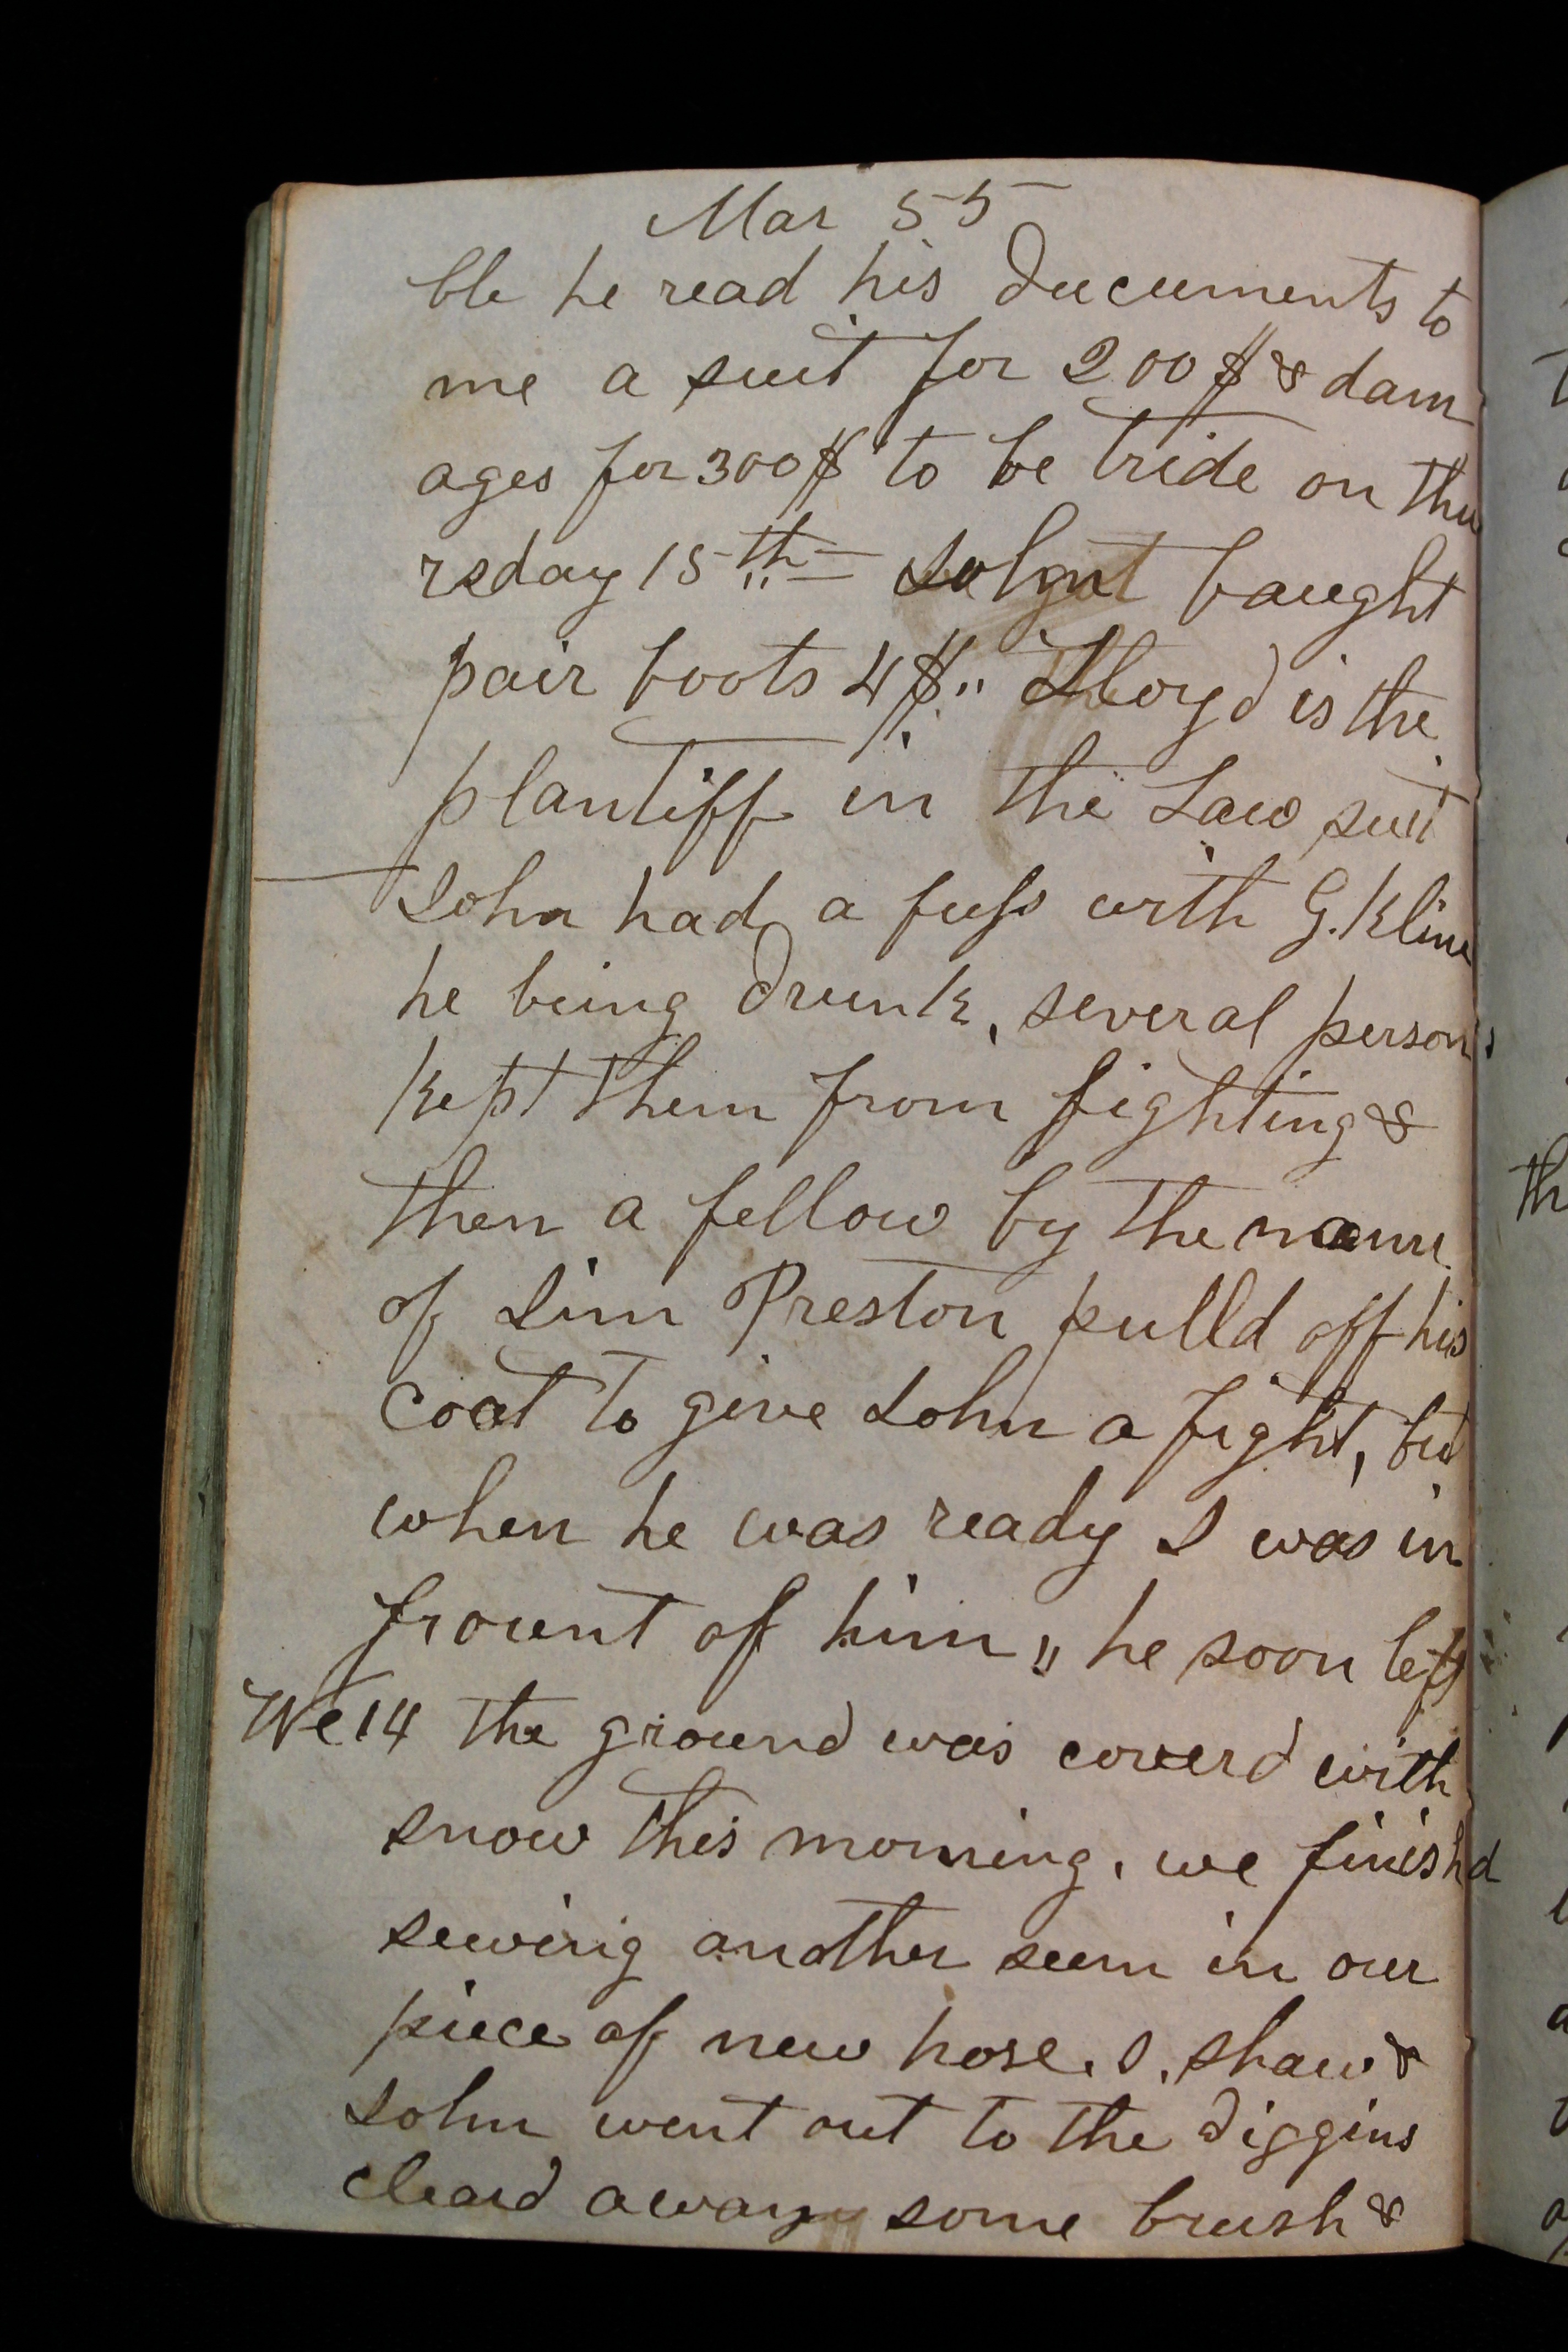 Mar 55
ble he read his ducuments to
me a suit for 200$ & dam
ages for 300$ to be tride on thu
rsday 15th Sol got baught
pair boots 4$ " Lloyd is the
plantiff in the Law suit
John had a fuss with G. Kline
he being drunk, several persons
kept them from fighting &
then a fellow by the name
of Jim Preston pulld off his
coat to give John a fight, but
when he was ready I was in
frount of him " he soon left
We 14 the ground was coverd with
snow this morning, we finishd
sewing another seem in our
piece of new hose. S. Shaw &
John went out to the diggins
cleard away some brush &